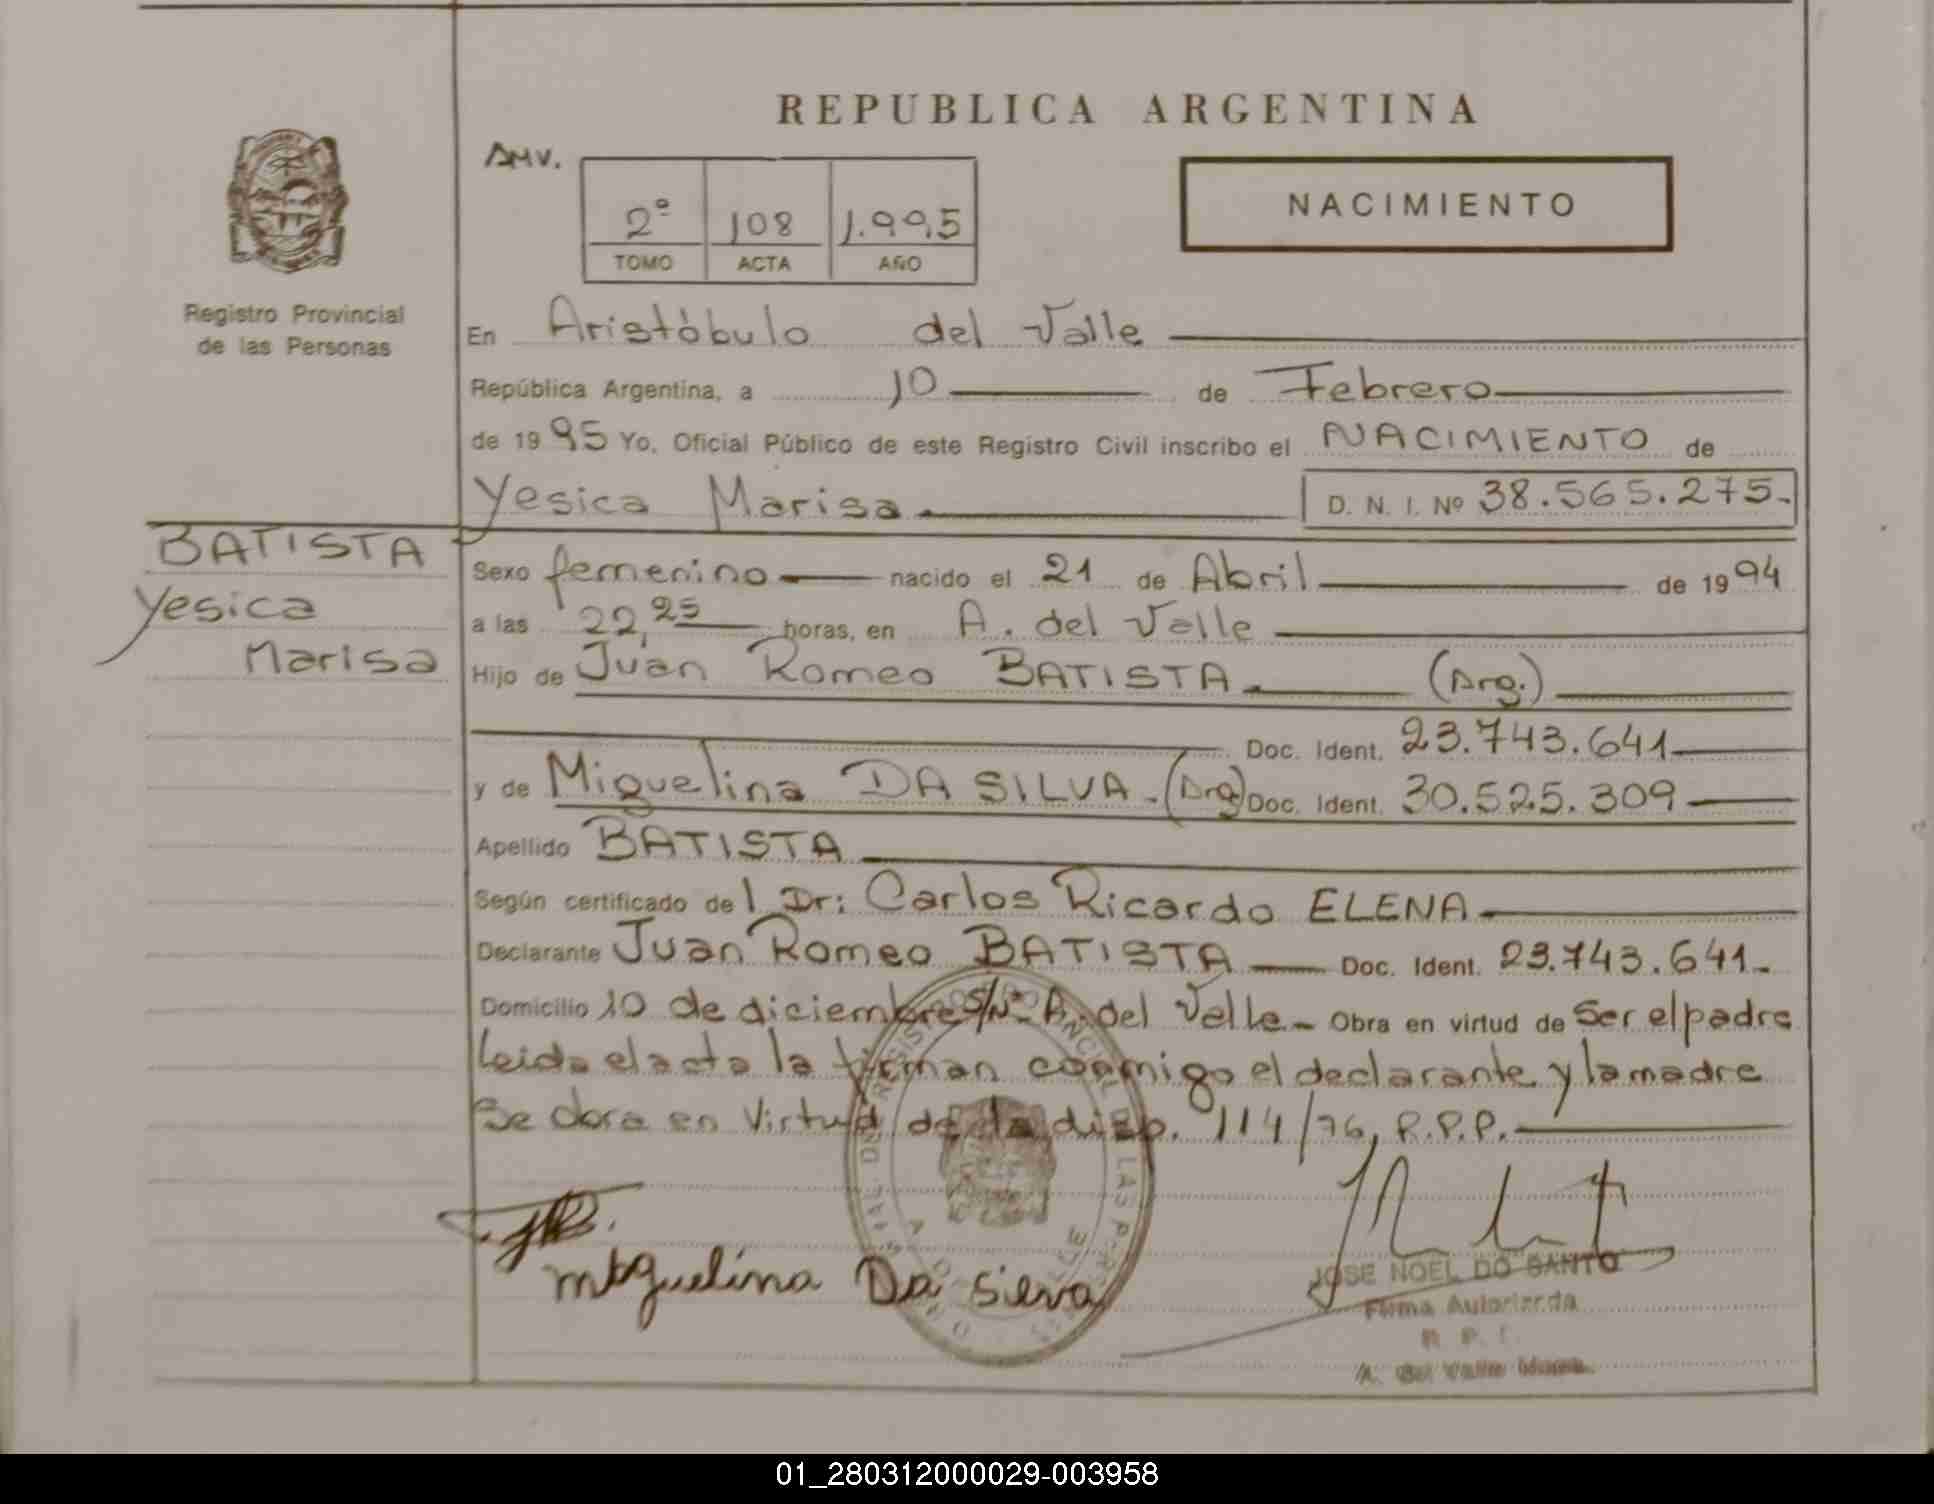 REPUBLICA ARGENTINA
AMV.
2º 108 1.995
TOMO ACTA AÑO
NACIMIENTO
Registro Provincial
de las Personas
En Aristóbulo del Valle
República Argentina, a 10 de Febrero
de 1995 Yo, Oficial Público de este Registro Civil inscribo el NACIMIENTO de
Yesica Marisa D. N. I. Nº 38.565.275.-
BATISTA
Yesica
Marisa
Sexo femenino nacido el 21 de Abril de 1994
a las 22,25 horas, en A. del Valle
Hijo de Juan Romeo BATISTA (Arg.)
Doc. Ident. 23.743.641
y de Miguelina DA SILVA.- (Arg) Doc. Ident. 30.525.309
Apellido BATISTA
Según certificado del Dr: Carlos Ricardo ELENA
Declarante Juan Romeo BATISTA Doc. Ident. 23.743.641.-
Domicilio 10 de diciembre S/Nº A. del Valle.- Obra en virtud de Ser el padre
Leida el acta la firman conmigo el declarante y la madre
Se obra en Virtud de la disp. 114/76, R.P.P.
Miguelina Da Silva
JOSE NOEL DO SANTO
Firma Autorizada
A. Del Valle
01_280312000029-003958